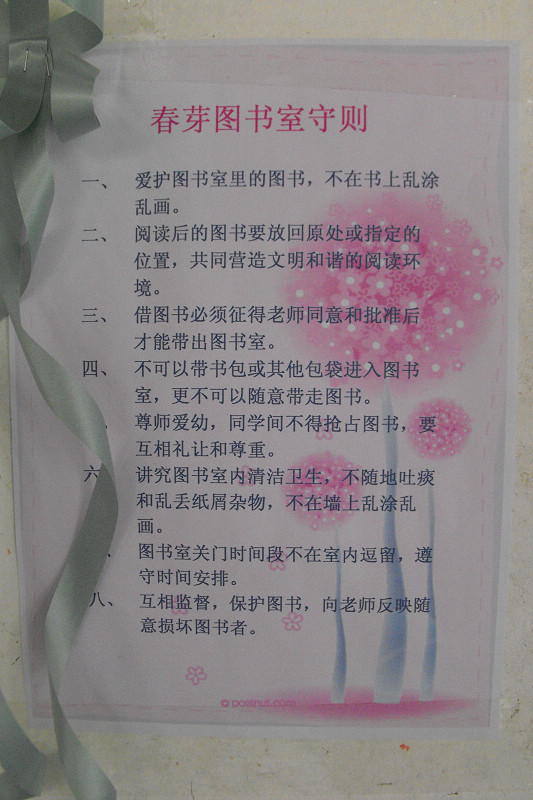 春芽图书室守则
一、 爱护图书室里的图书，不在书上乱涂
乱画。
二、 阅读后的图书要放回原处或指定的
位置，共同营造文明和谐的阅读环
境。
三、 借图书必须征得老师同意和批准后
才能带出图书室。
四、 不可以带书包或其他包袋进入图书
室，更不可以随意带走图书。
、 尊师爱幼，同学间不得抢占图书，要
互相礼让和尊重。
六、 讲究图书室内清洁卫生，不随地吐痰
和乱丢纸屑杂物，不在墙上乱涂乱
画。
、 图书室关门时间段不在室内逗留，遵
守时间安排。
八、 互相监督，保护图书，向老师反映随
意损坏图书者。